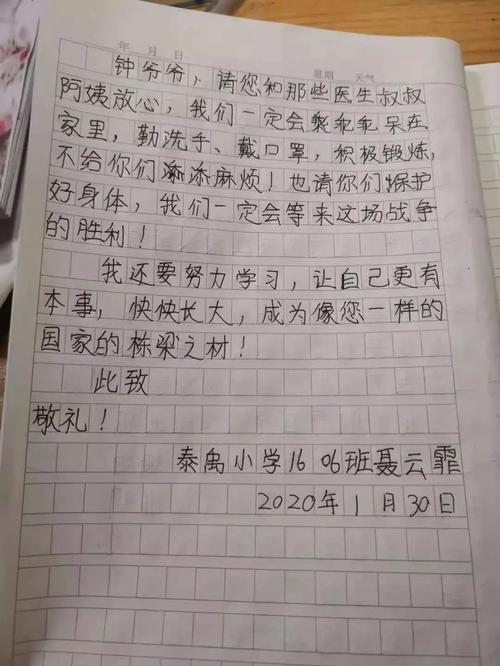 年 月 日 星期 天气
钟爷爷,请您和那些医生叔叔
阿姨放心,我们一定会乖乖呆在
家里,勤洗手、戴口罩,积极锻炼,
不给你们添麻烦!也请你们保护
好身体,我们一定会等来这场战争
的胜利!
我还要努力学习,让自己更有
本事,快快长大,成为像您一样的
国家的栋梁之材!
此致
敬礼!
泰禹小学1606班聂云霏
2020年1月30日